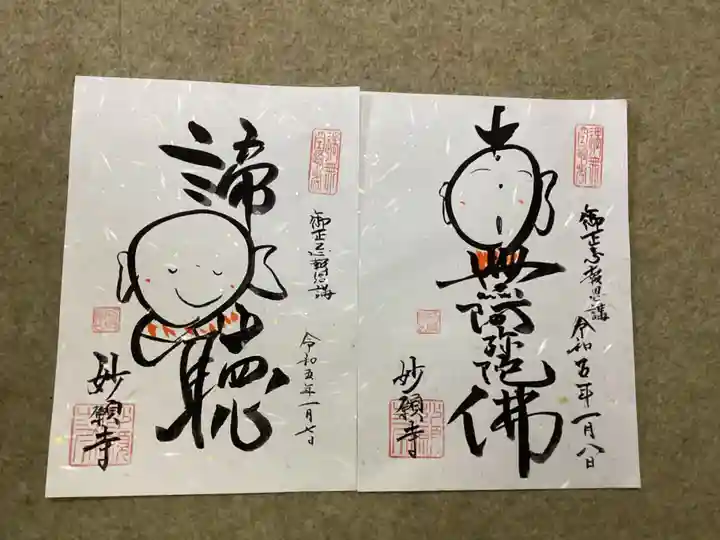 御正忌報恩講
諦聴
令和五年一月七日
妙願寺
御正忌報恩講
南無阿弥陀佛
令和五年一月八日
妙願寺